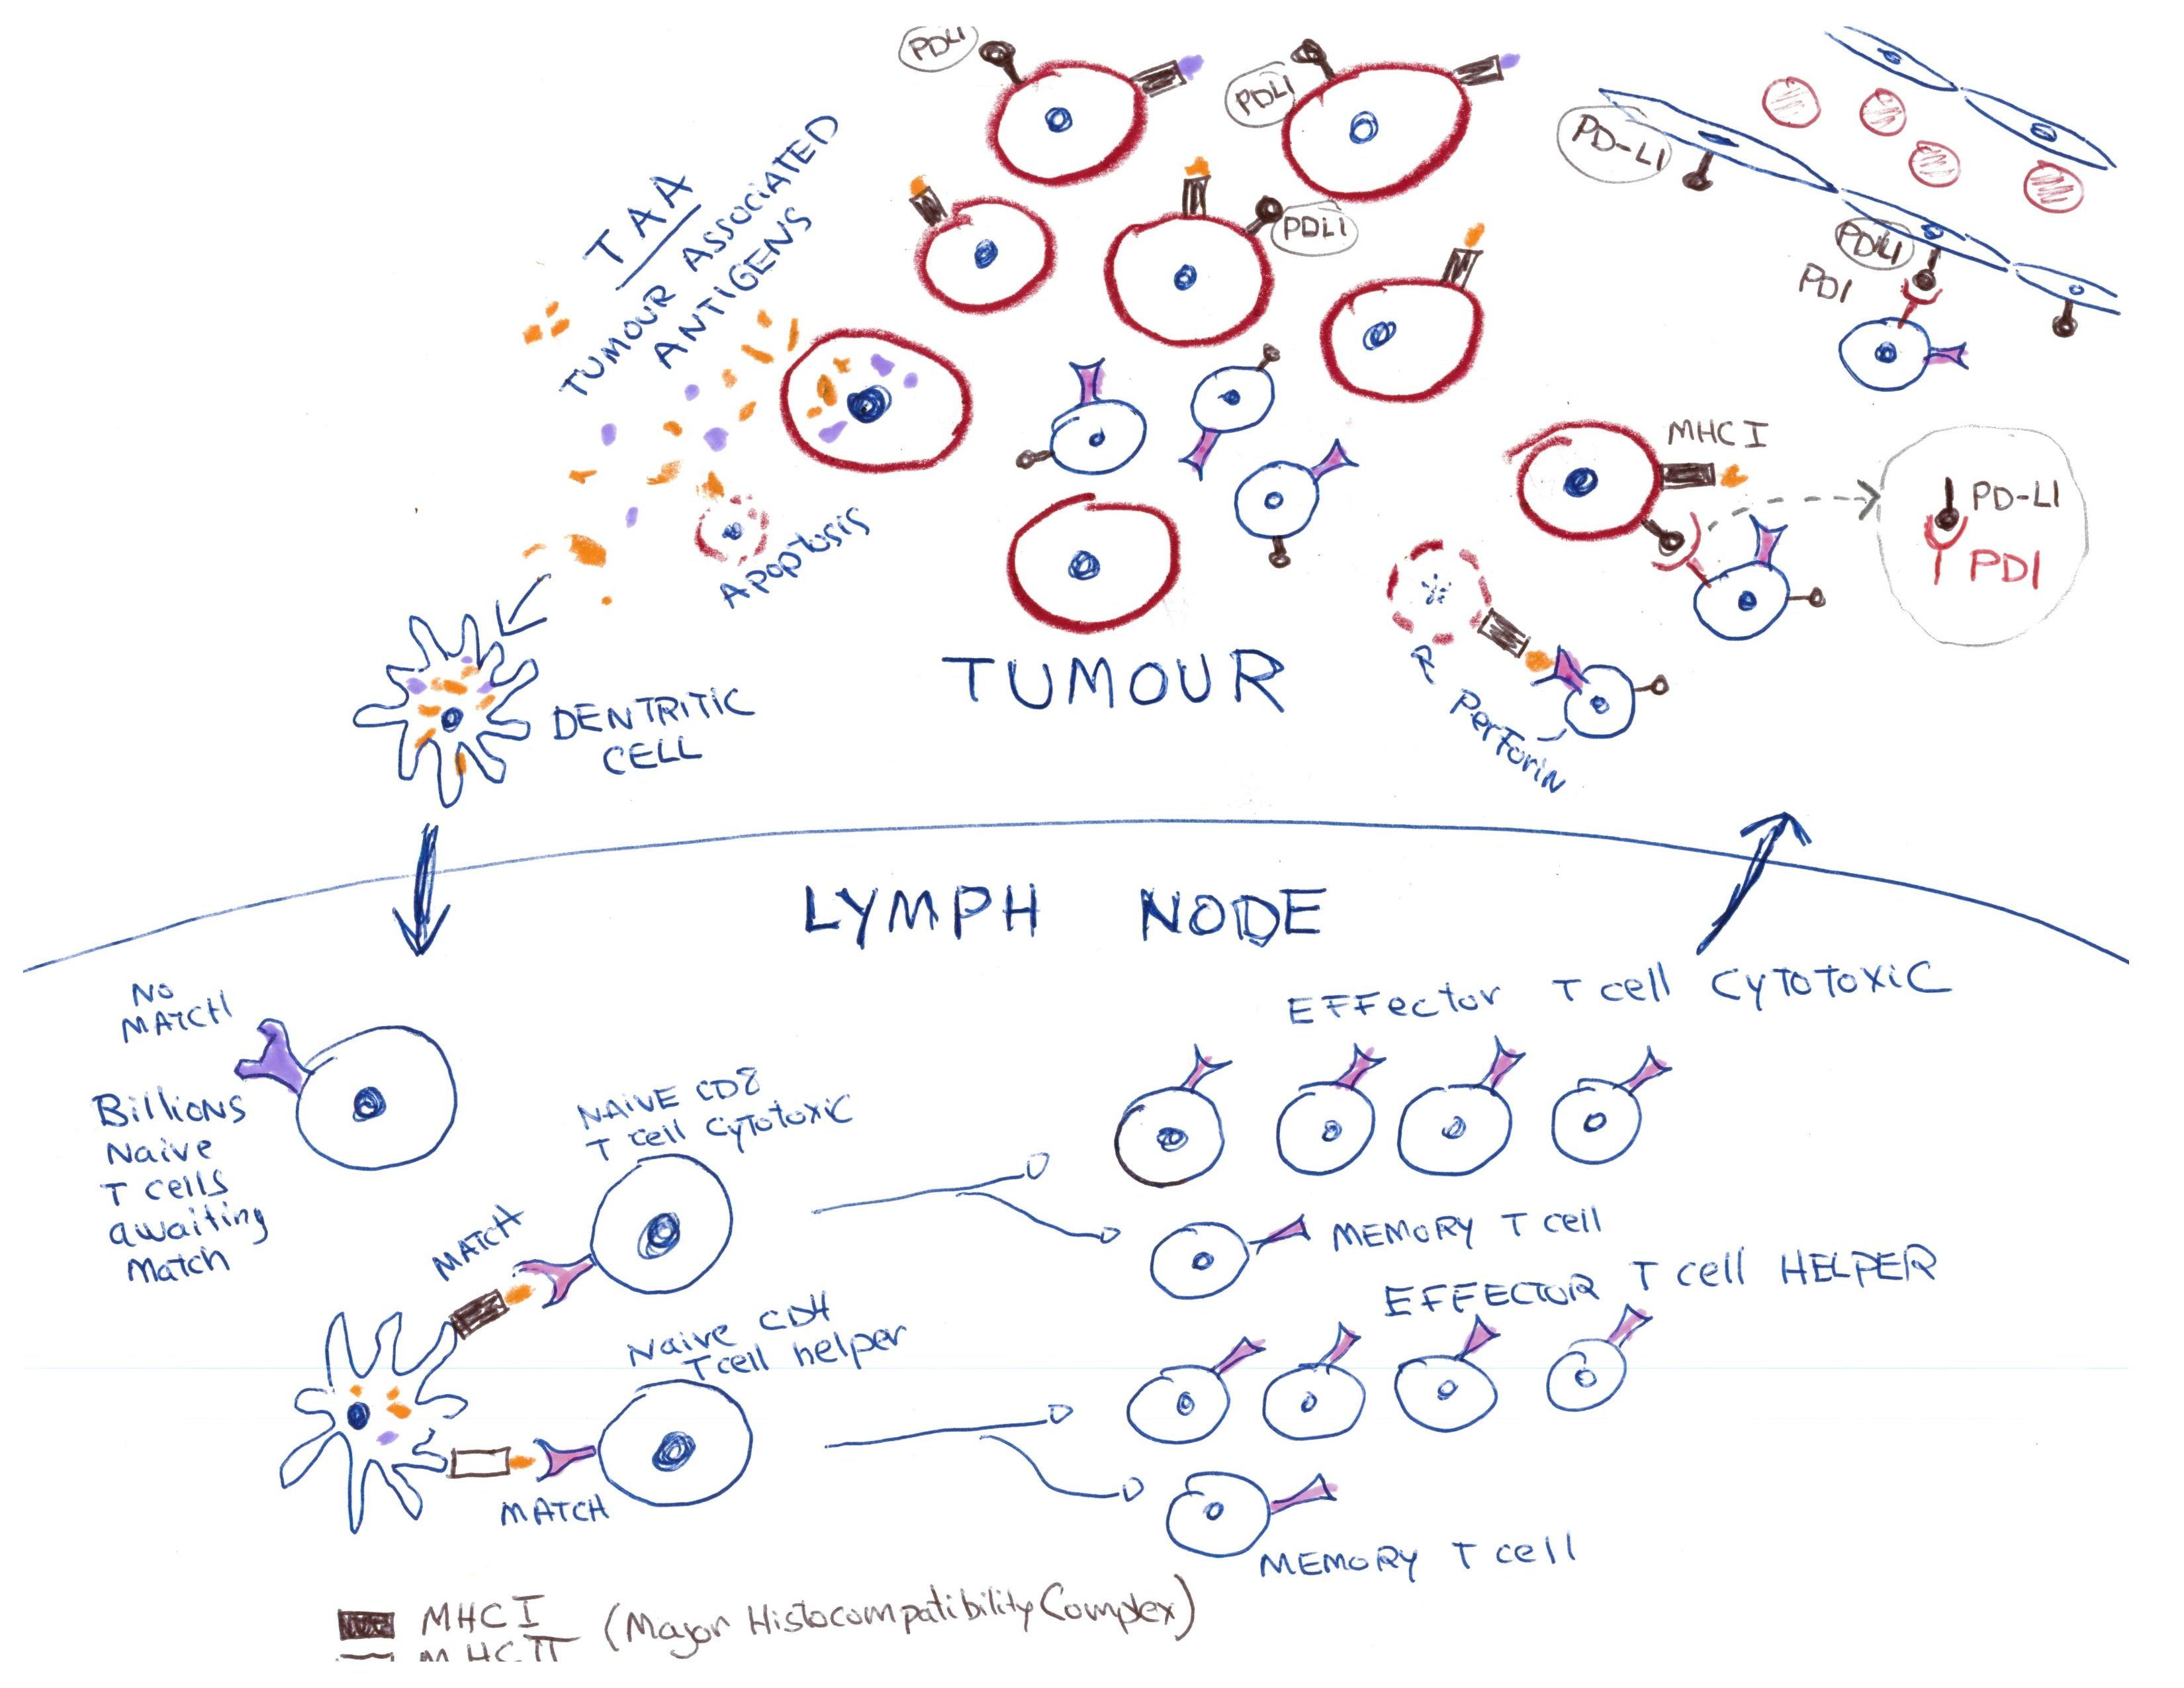 PDL1
PDL1
PD-L1
TAA
TUMOUR ASSOCIATED
ANTIGENS
PDL1
PDL1
PD1
MHC I
PD-L1
PD1
Apoptosis
TUMOUR
DENTRITIC
CELL
Perforin
LYMPH NODE
NO
MATCH
Billions
Naive
T cells
awaiting
Match
NAIVE CD8
T cell cytotoxic
MATCH
EFFector T cell CYTOTOXIC
MEMORY T cell
Naive CD4
T cell helper
MATCH
EFFECTOR T cell HELPER
MEMORY T cell
MHC I (Major Histocompatibility Complex)
MHC II